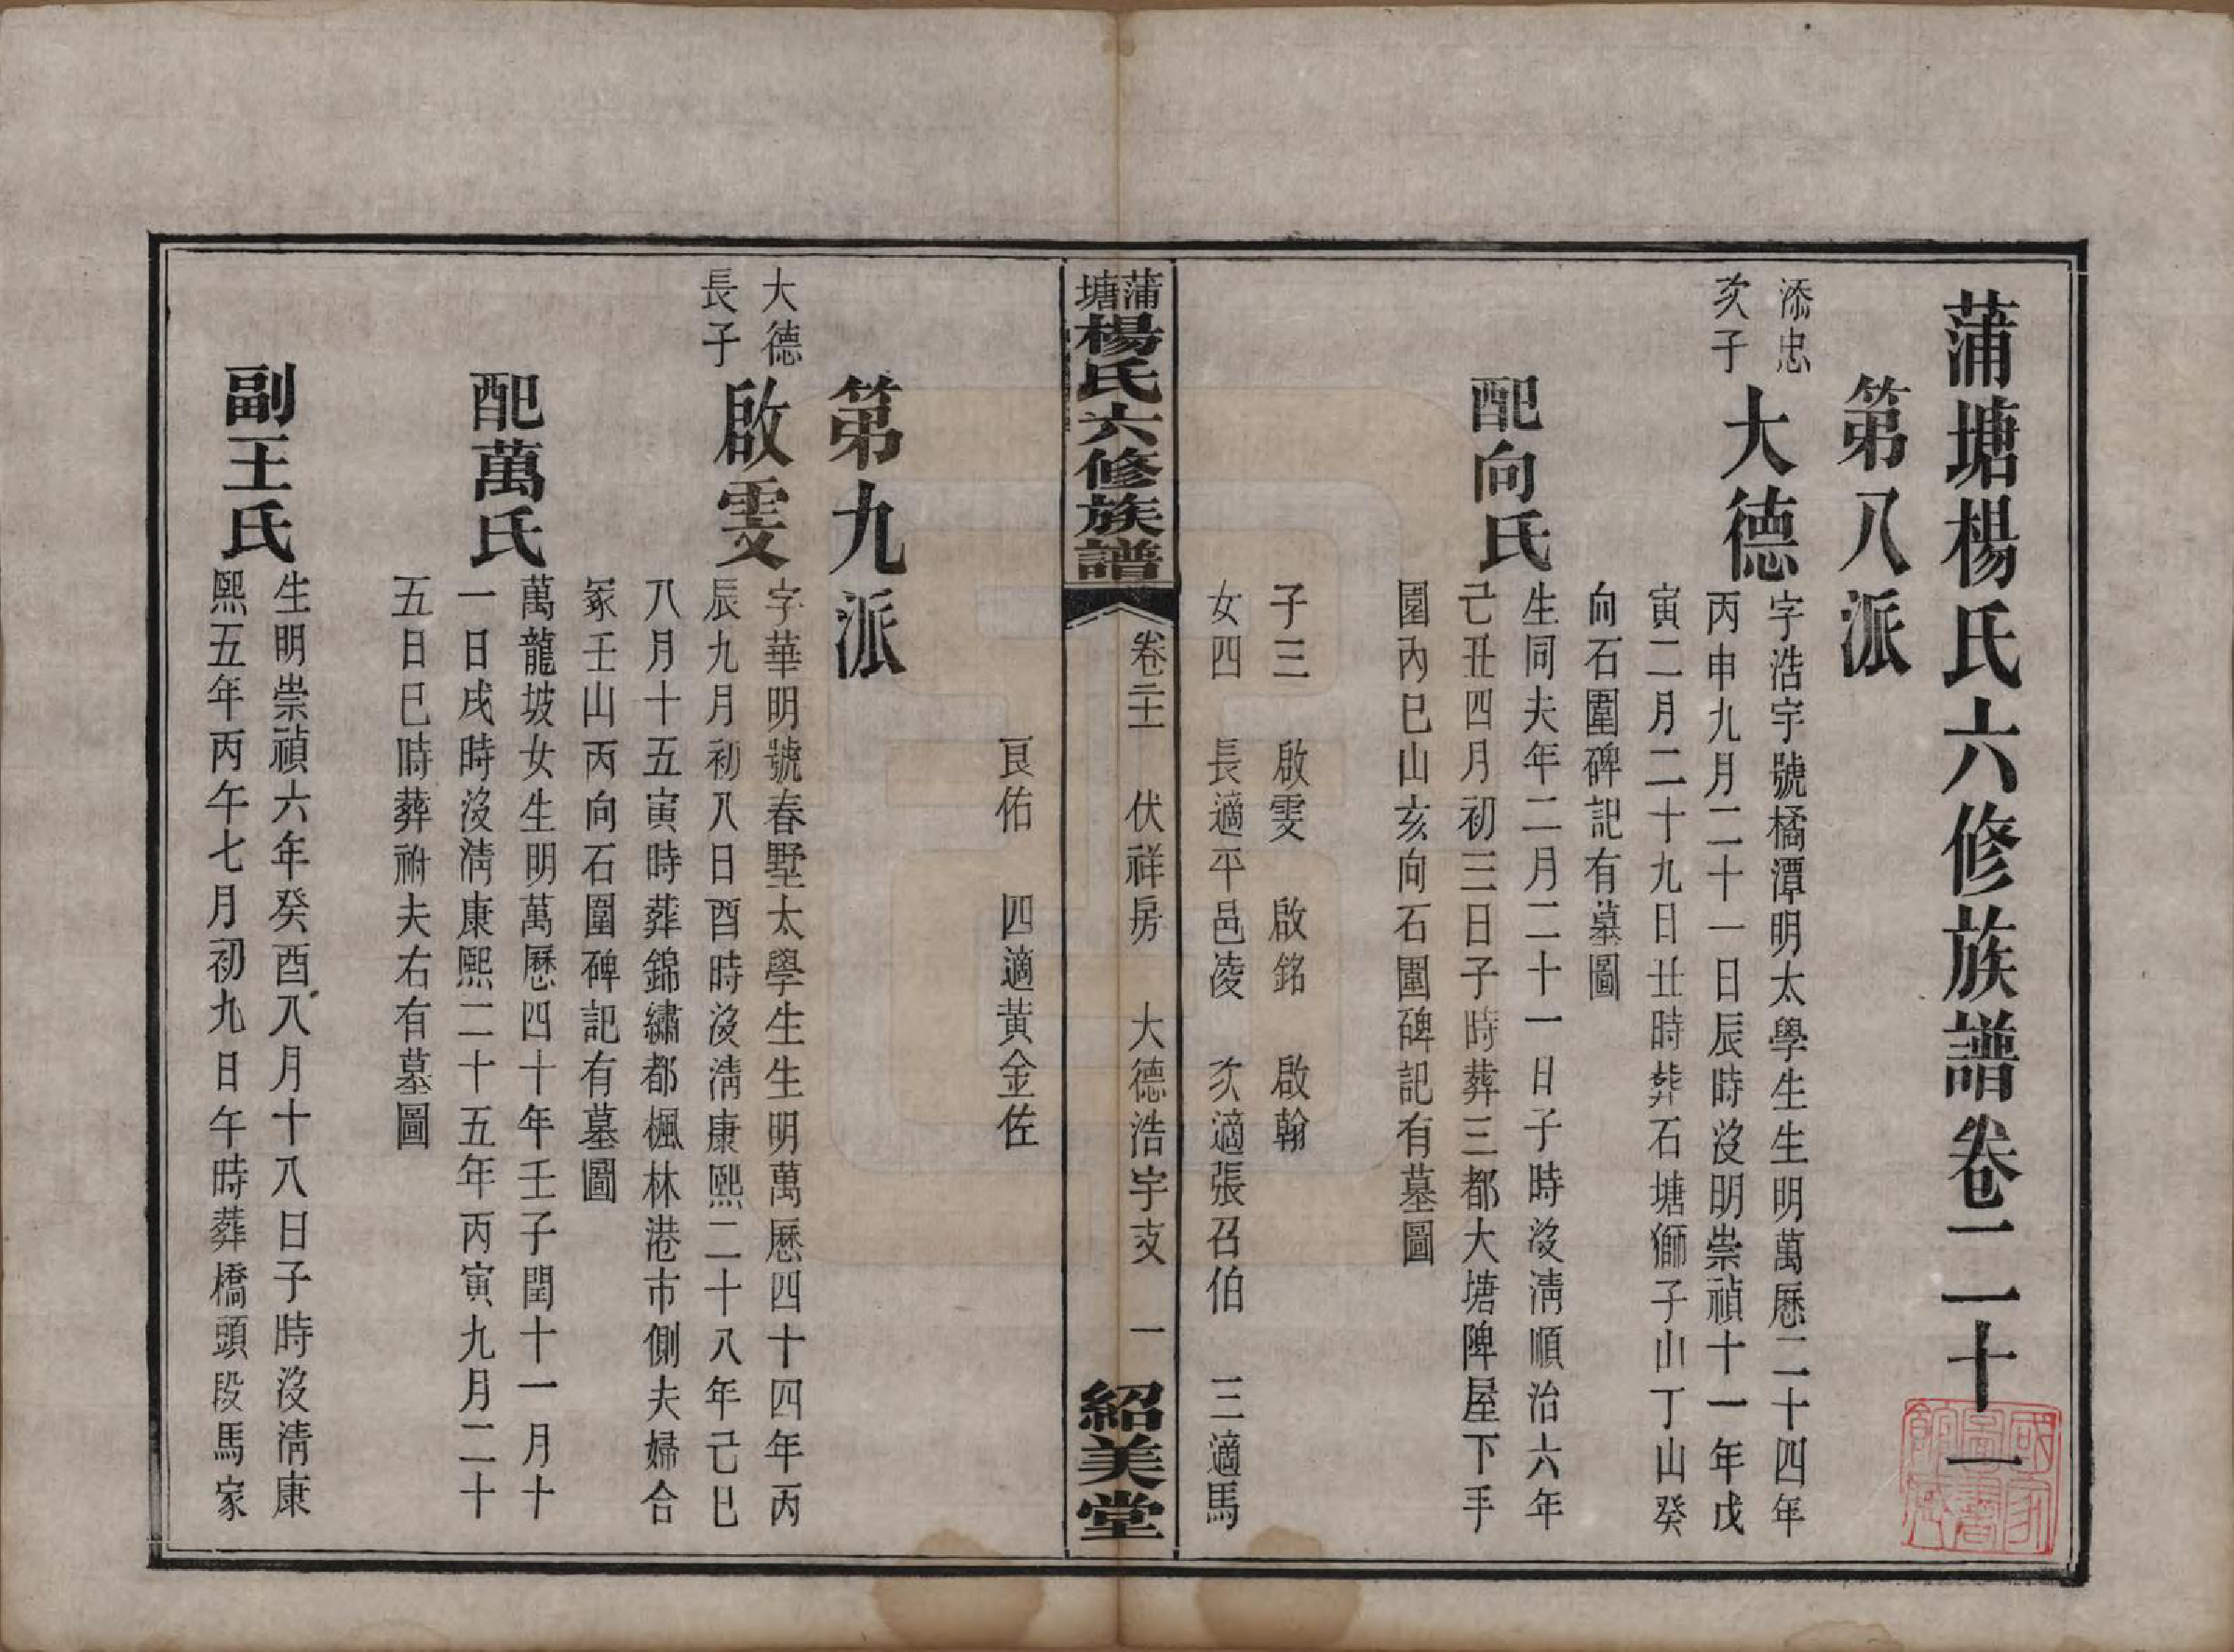 蒲塘楊氏六修族譜卷二十一
第八派
添忠
次子
大德
字浩宇號橘潭明太學生生明萬厯二十四年
丙申九月二十一日辰時沒明崇禎十一年戊
寅二月二十九日丑時葬石塘獅子山丁山癸
向石圍碑記有墓圖
配向氏
生同夫年二月二十一日子時沒淸順治六年
己丑四月初三日子時葬三都大塘陴屋下手
園內巳山亥向石圍碑記有墓圖
子三 啟雯 啟銘 啟翰
女四 長適平邑凌 次適張召伯 三適馬
蒲塘楊氏六修族譜 卷二十一 伏祥房 大德浩宇支 一 紹美堂
艮佑 四適黃金佐
第九派
大德
長子
啟雯
字華明號春墅太學生生明萬厯四十四年丙
辰九月初八日酉時沒淸康熙二十八年己巳
八月十五寅時葬錦繡都楓林港市側夫婦合
冢壬山丙向石圍碑記有墓圖
配萬氏
萬龍坡女生明萬厯四十年壬子閏十一月十
一日戌時沒淸康熙二十五年丙寅九月二十
五日巳時葬祔夫右有墓圖
副王氏
生明崇禎六年癸酉八月十八日子時沒淸康
熙五年丙午七月初九日午時葬橋頭段馬家
國家圖書館藏